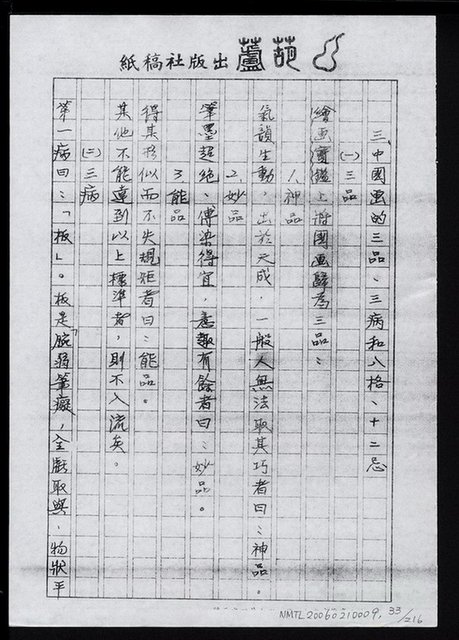 葫蘆出版社稿紙
三、中國画的三品、三病和八格、十二忌
(一)三品
繪画寶鑑上將國画歸為三品:
1.神品
氣韻生動,出於天成,一般人無法取其巧者曰:神品。
2.妙品
筆墨超絶、傅染得宜,意趣有餘者曰:妙品。
3.能品
得其形似而不失規矩者曰:能品。
其他不能達到以上標準者,則不入流矣。
(二)三病
第一病曰:「板」。板是「腕弱筆癡,全虧取與,物狀平
NMTL20060210009, 33/216